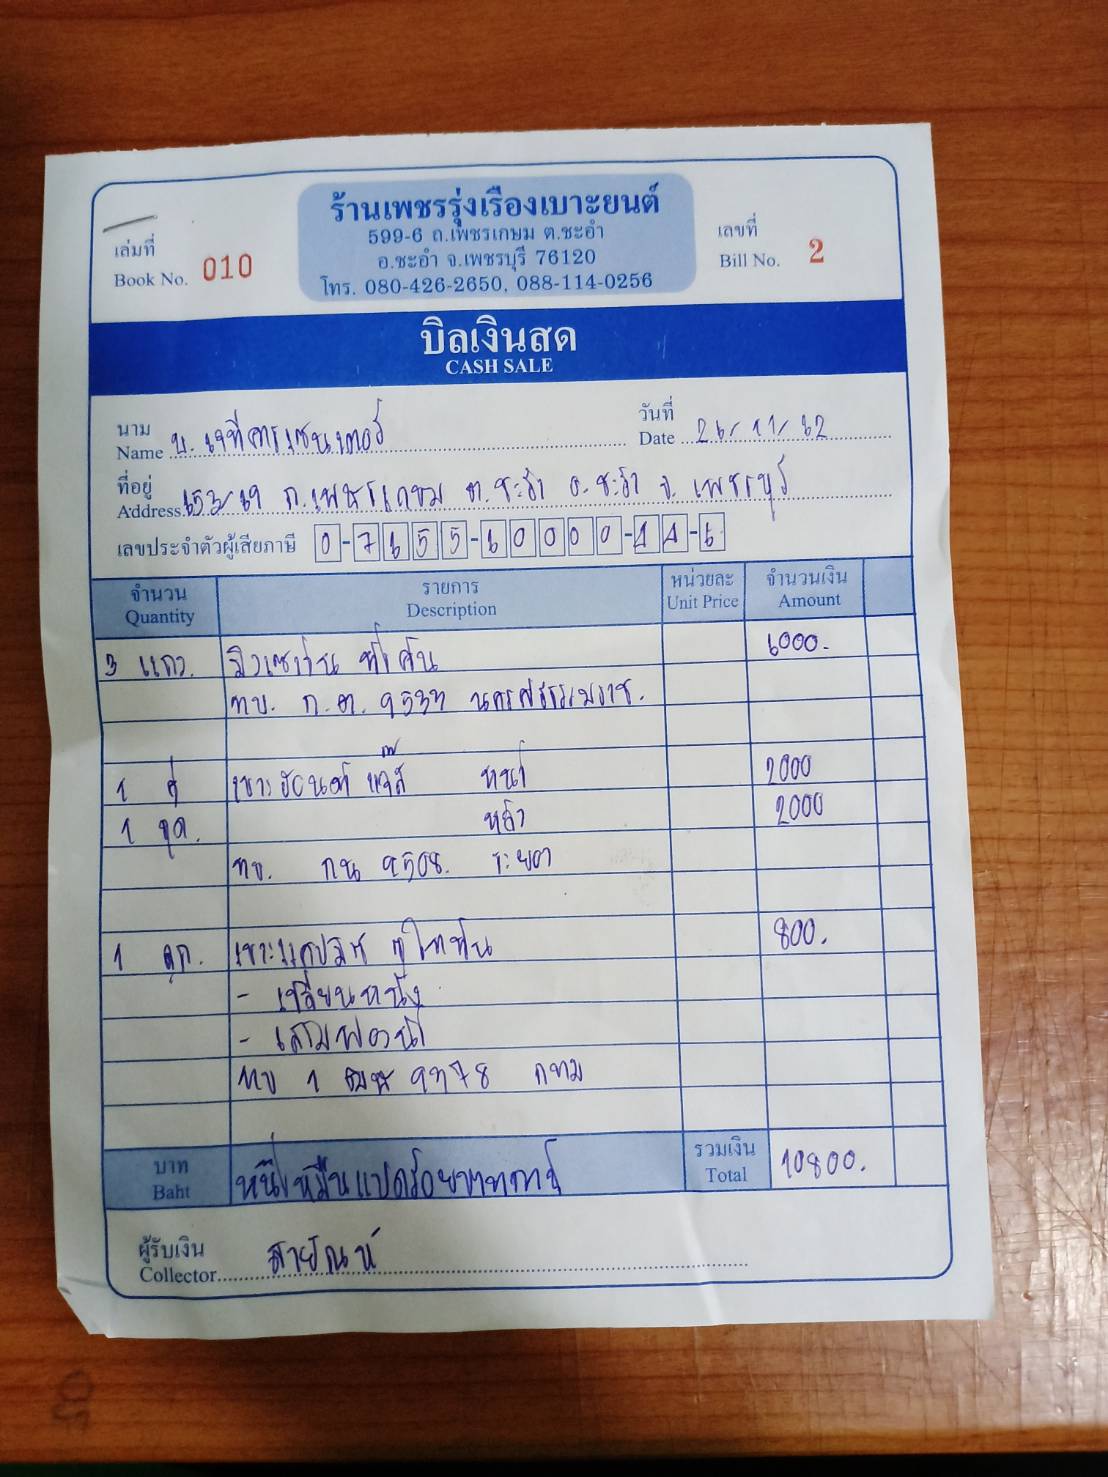 ร้านเพชรรุ่งเรืองเบาะยนต์
599-6 ถ.เพชรเกษม ต.ชะอำ
อ.ชะอำ จ.เพชรบุรี 76120
โทร. 080-426-2650, 088-114-0256
เล่มที่
Book No. 010
เลขที่
Bill No. 2
บิลเงินสด
CASH SALE
นาม
Name บ. เจทีคาร์เซนเตอร์
วันที่
Date 26/11/62
ที่อยู่
Address 653/19 ถ.เพชรเกษม ต.ชะอำ อ.ชะอำ จ.เพชรบุรี
เลขประจำตัวผู้เสียภาษี 0-7655-60000-11-6
จำนวน รายการ หน่วยละ จำนวนเงิน
Quantity Description Unit Price Amount
3 แถว 6000.
ทบ. 9533 นครศรีธรรมราช.
1 คู่ เบาะ แจ๊ส หน้า 2000
1 ชุด. หลัง 2000
ทบ. กน 9508. ระยอง
1 ลูก. เบาะแคปซูล 800.
- เปลี่ยนหนัง
- เสริมฟองน้ำ
ทบ 1 9378 กทม
บาท
Baht หนึ่งหมื่นแปดร้อยบาทถ้วน
รวมเงิน
Total 10800.
ผู้รับเงิน
Collector สายัณห์